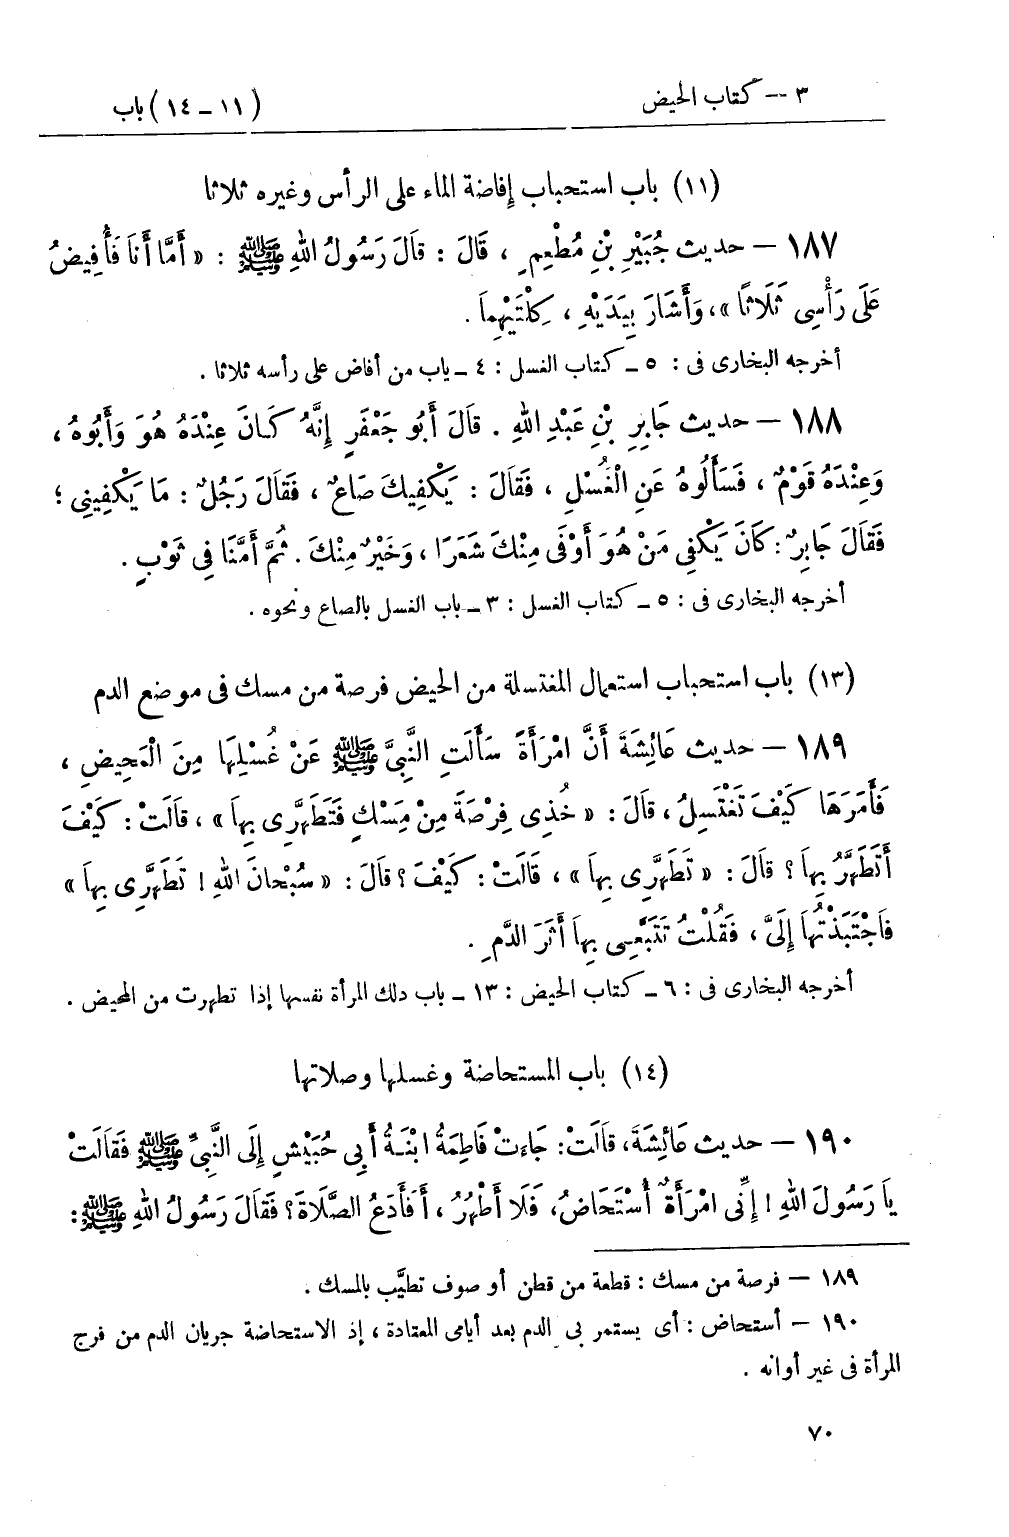 ٣ — كتاب الحيض
(١١ – ١٤) باب
(١١) باب استحباب إفاضة الماء على الرأس وغيره ثلاثا
١٨٧ — حديث جُبَيْرِ بْنِ مُطْعِمٍ ، قَالَ : قَالَ رَسُولُ اللهِ ﷺ : « أَمَّا أَنَا فَأُفِيضُ
عَلَى رَأْسِى ثَلَاثًا » ، وَأَشَارَ بِيَدَيْهِ ، كِلْتَيْهِمَا .
أخرجه البخارى فى : ٥ – كتاب الغسل : ٤ – باب من أفاض على رأسه ثلاثا .
١٨٨ — حديث جَابِرِ بْنِ عَبْدِ اللهِ . قَالَ أَبُو جَعْفَرٍ إِنَّهُ كَانَ عِنْدَهُ هُوَ وَأَبُوهُ ،
وَعِنْدَهُ قَوْمٌ ، فَسَأَلُوهُ عَنِ الْغُسْلِ ، فَقَالَ : يَكْفِيكَ صَاعٌ ، فَقَالَ رَجُلٌ : مَا يَكْفِينِى ؛
فَقَالَ جَابِرٌ : كَانَ يَكْفِى مَنْ هُوَ أَوْفَى مِنْكَ شَعَرًا ، وَخَيْرٌ مِنْكَ . ثُمَّ أَمَّنَا فِى ثَوْبٍ .
أخرجه البخارى فى : ٥ – كتاب الغسل : ٣ – باب الغسل بالصاع ونحوه .
(١٣) باب استحباب استعمال المغتسلة من الحيض فرصة من مسك فى موضع الدم
١٨٩ — حديث عَائِشَةَ أَنَّ امْرَأَةً سَأَلَتِ النَّبِىَّ ﷺ عَنْ غُسْلِهَا مِنَ الْمَحِيضِ ،
فَأَمَرَهَا كَيْفَ تَغْتَسِلُ ، قَالَ : « خُذِى فِرْصَةً مِنْ مِسْكٍ فَتَطَهَّرِى بِهَا » ، قَالَتْ : كَيْفَ
أَتَطَهَّرُ بِهَا ؟ قَالَ : « تَطَهَّرِى بِهَا » ، قَالَتْ : كَيْفَ ؟ قَالَ : « سُبْحَانَ اللهِ ! تَطَهَّرِى بِهَا »
فَاجْتَبَذْتُهَا إِلَىَّ ، فَقُلْتُ تَتَبَّعِى بِهَا أَثَرَ الدَّمِ .
أخرجه البخارى فى : ٦ – كتاب الحيض : ١٣ – باب دلك المرأة نفسها إذا تطهرت من المحيض .
(١٤) باب المستحاضة وغسلها وصلاتها
١٩٠ — حديث عَائِشَةَ ، قَالَتْ : جَاءَتْ فَاطِمَةُ ابْنَةُ أَبِى حُبَيْشٍ إِلَى النَّبِىِّ ﷺ فَقَالَتْ
يَا رَسُولَ اللهِ ! إِنِّى امْرَأَةٌ أُسْتَحَاضُ ، فَلَا أَطْهُرُ ، أَفَأَدَعُ الصَّلَاةَ ؟ فَقَالَ رَسُولُ اللهِ ﷺ :
١٨٩ — فرصة من مسك : قطعة من قطن أو صوف تطيَّب بالمسك .
١٩٠ — أستحاض : أى يستمر بى الدم بعد أيامى المعتادة ، إذ الاستحاضة جريان الدم من فرج
المرأة فى غير أوانه .
٧٠